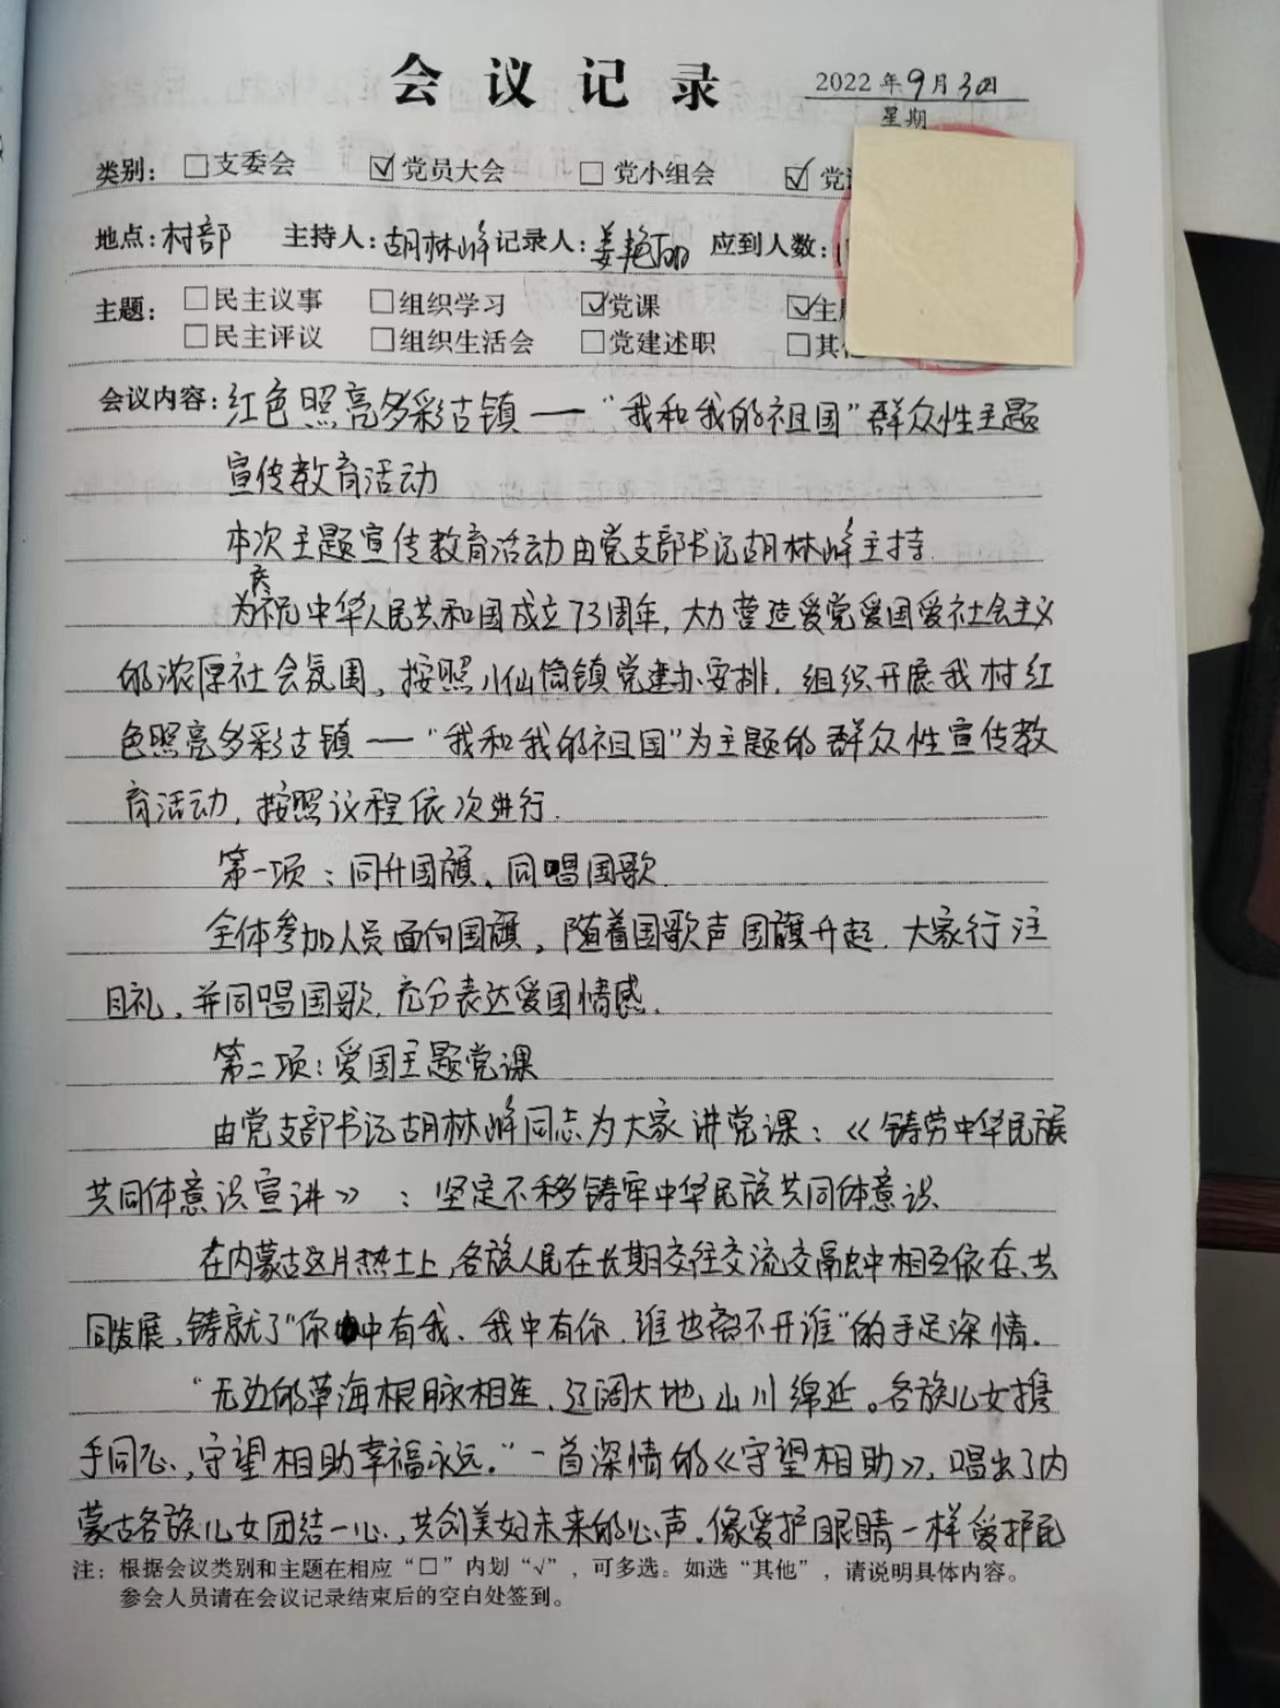 会议记录
2022年9月30日
星期
类别：□支委会 ☑党员大会 □党小组会 ☑党
地点：村部 主持人：胡林峰 记录人：姜艳丽 应到人数：
主题：□民主议事 □组织学习 ☑党课 ☑主
□民主评议 □组织生活会 □党建述职 □其他
会议内容：红色照亮多彩古镇——“我和我的祖国”群众性主题
宣传教育活动
本次主题宣传教育活动由党支部书记胡林峰主持.
为庆祝中华人民共和国成立73周年，大力营造爱党爱国爱社会主义
的浓厚社会氛围，按照小仙筒镇党建办安排，组织开展我村红
色照亮多彩古镇——“我和我的祖国”为主题的群众性宣传教
育活动，按照议程依次进行.
第一项：同升国旗、同唱国歌.
全体参加人员面向国旗，随着国歌声国旗升起，大家行注
目礼，并同唱国歌，充分表达爱国情感.
第二项：爱国主题党课
由党支部书记胡林峰同志为大家讲党课：《铸劳中华民族
共同体意识宣讲》：坚定不移铸牢中华民族共同体意识、
在内蒙古这片热土上，各族人民在长期交往交流交融中相互依存、共
同发展，铸就了“你中有我、我中有你，谁也离不开谁”的手足深情.
“无边的草海根脉相连，辽阔大地山川绵延。各族儿女携
手同心，守望相助幸福永远.”一首深情的《守望相助》，唱出了内
蒙古各族儿女团结一心，共创美好未来的心声.像爱护眼睛一样爱护民
注：根据会议类别和主题在相应“□”内划“√”，可多选。如选“其他”，请说明具体内容。
参会人员请在会议记录结束后的空白处签到。